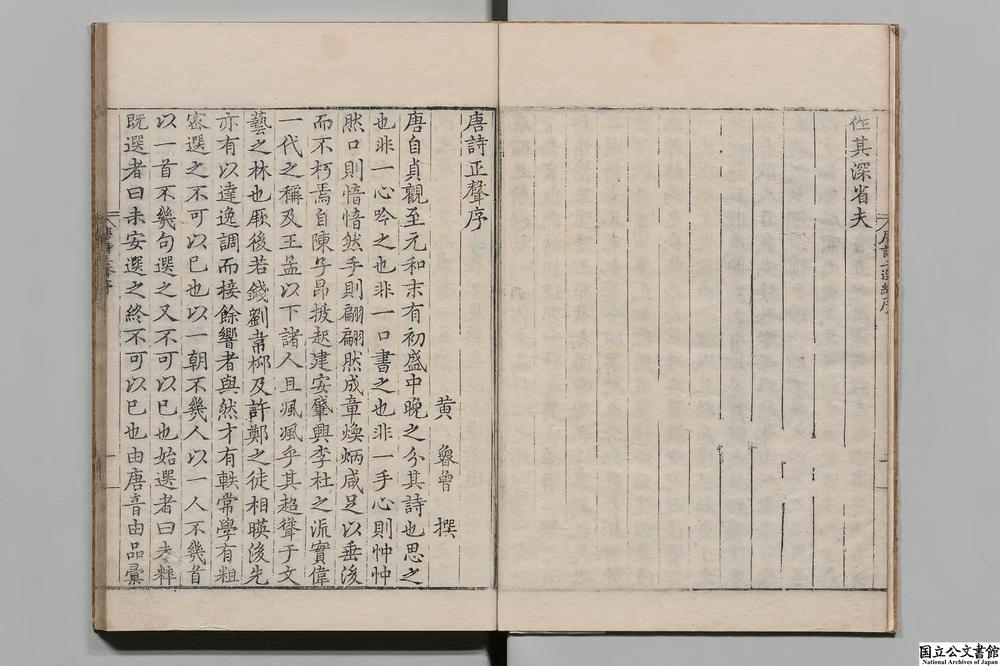 作其深省夫
唐詩正聲序
黃 魯曾 撰
唐自貞觀至元和末有初盛中晚之分其詩也思之
也非一心吟之也非一口書之也非一手心則忡忡
然口則愔愔然手則翩翩然成章煥炳咸足以垂後
而不朽焉自陳子昂振起建安肇興李杜之派實偉
一代之稱及王孟以下諸人且渢渢乎其超聳于文
藝之林也厥後若錢劉韋栁及許鄭之徒相暎後先
亦有以達逸調而接餘響者與然才有軼常學有粗
宻選之不可以已也以一朝不幾人以一人不幾首
以一首不幾句選之又不可以已也始選者曰未粹
既選者曰未安選之終不可以已也由唐音由品彙
国立公文書館
National Archives of Japan